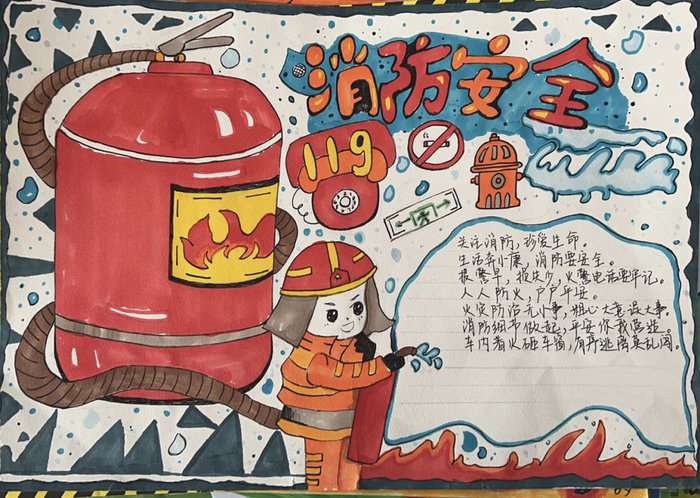 消防安全
119
关注消防，珍爱生命。
生活奔小康，消防要安全。
报警早，损失少，火警电话要牢记。
人人防火，户户平安。
火灾防治无小事，粗心大意误大事。
消防细节做起，平安你我
车内着火砸车窗，有序逃离莫乱闯。